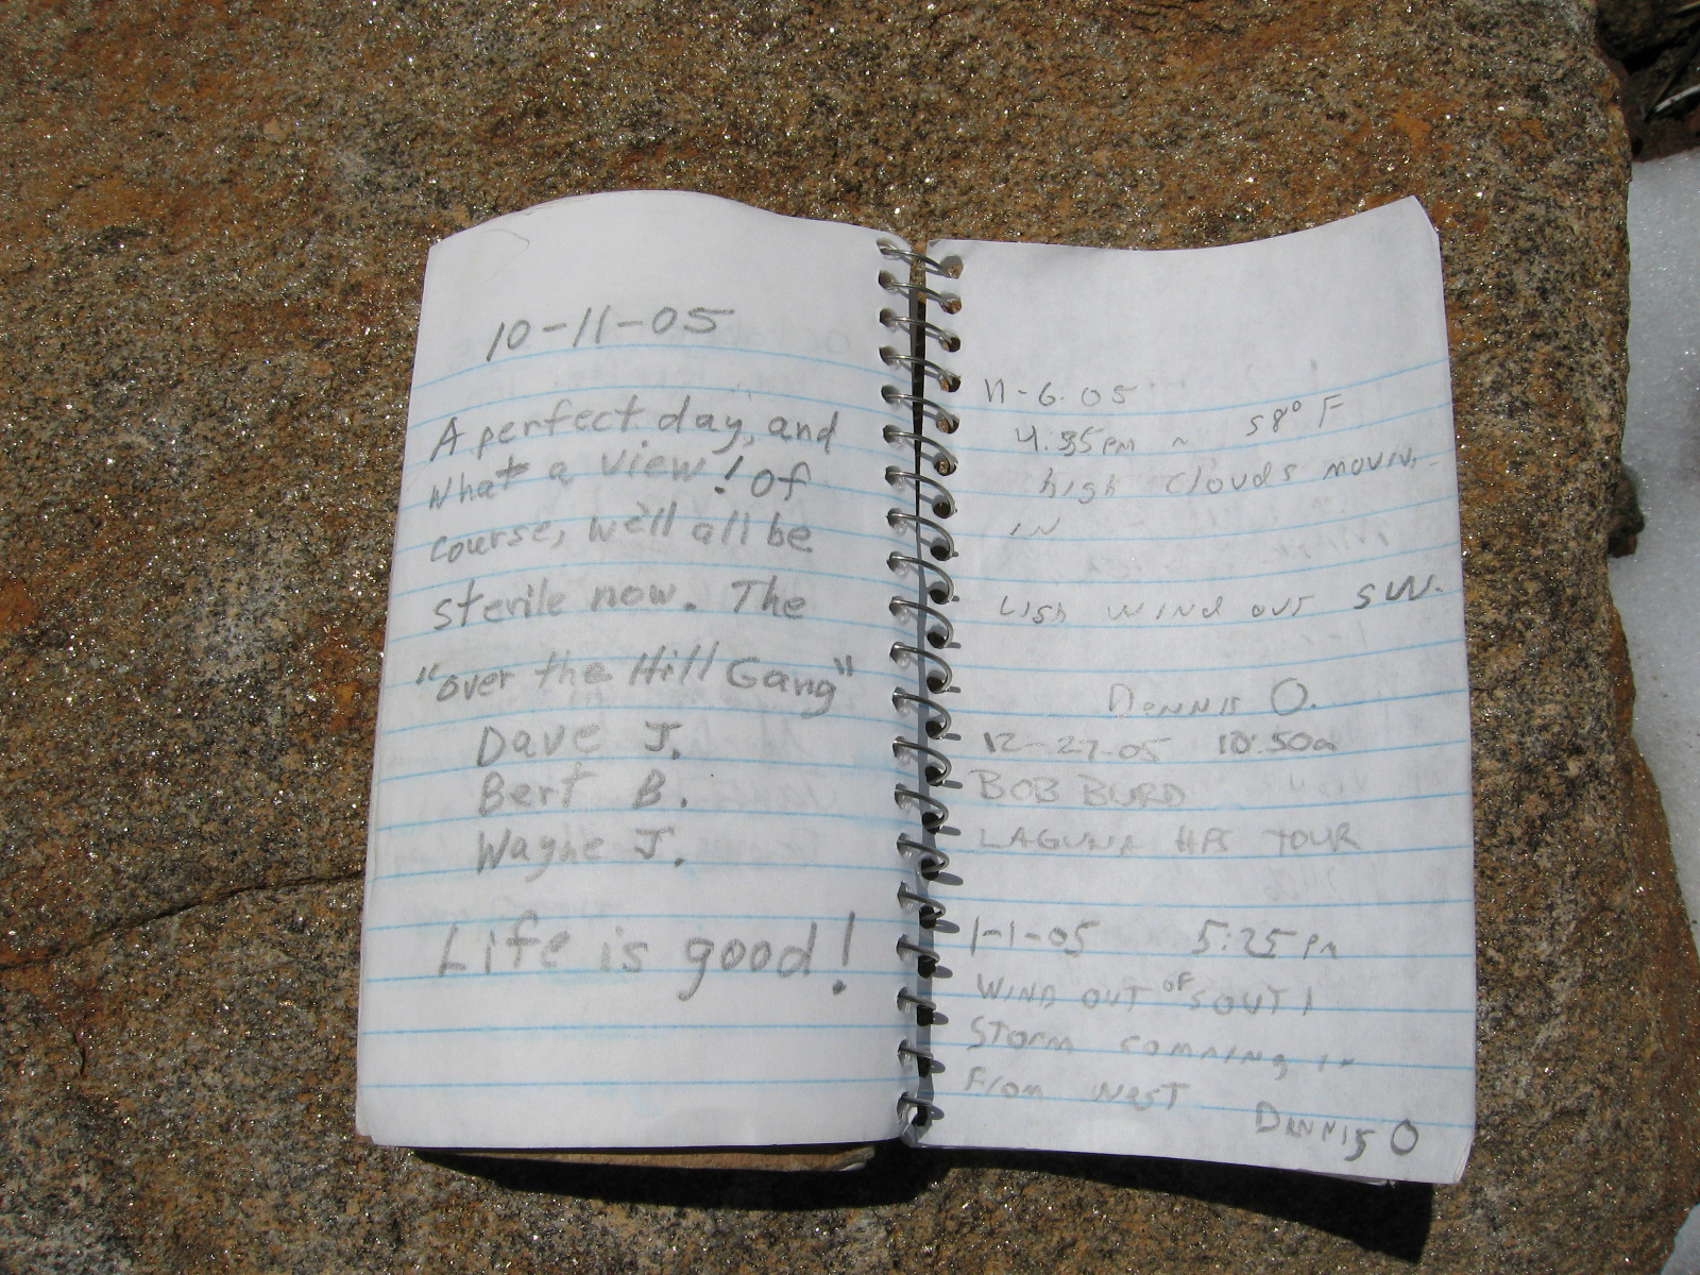 10-11-05
A perfect day, and
what a view! Of
course, we'll all be
sterile now. The
"over the Hill Gang"
Dave J.
Bert B.
Wayne J.
Life is good!
11-6-05
4:35pm ~ 58° F
high clouds moving
in
Ligh wind out SW.
Dennis O.
12-27-05 10:50a
BOB BURD
LAGUNA HPS TOUR
1-1-05 5:25pm
WIND OUT OF SOUTH
STORM comming in
From west
Dennis O